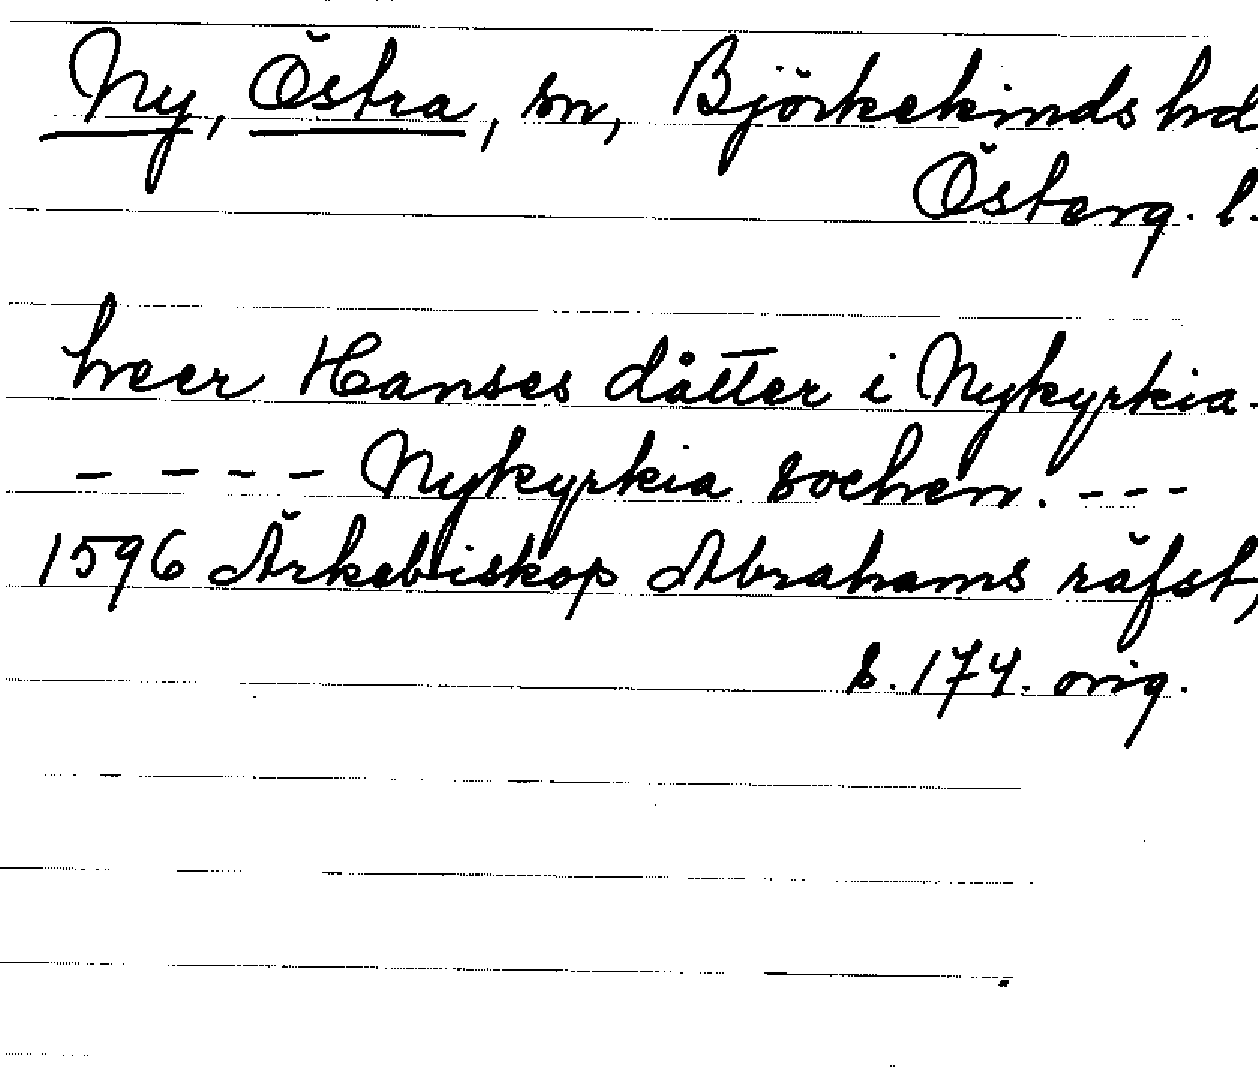 Ny, Östra, sn, Björkekinds hd,
Österg. l.
heer Hanses dåtter i Nykyrkia.
- - - - Nykyrkia sochen. - - -
1596 Ärkebiskop Abrahams räfst,
s. 174. orig.